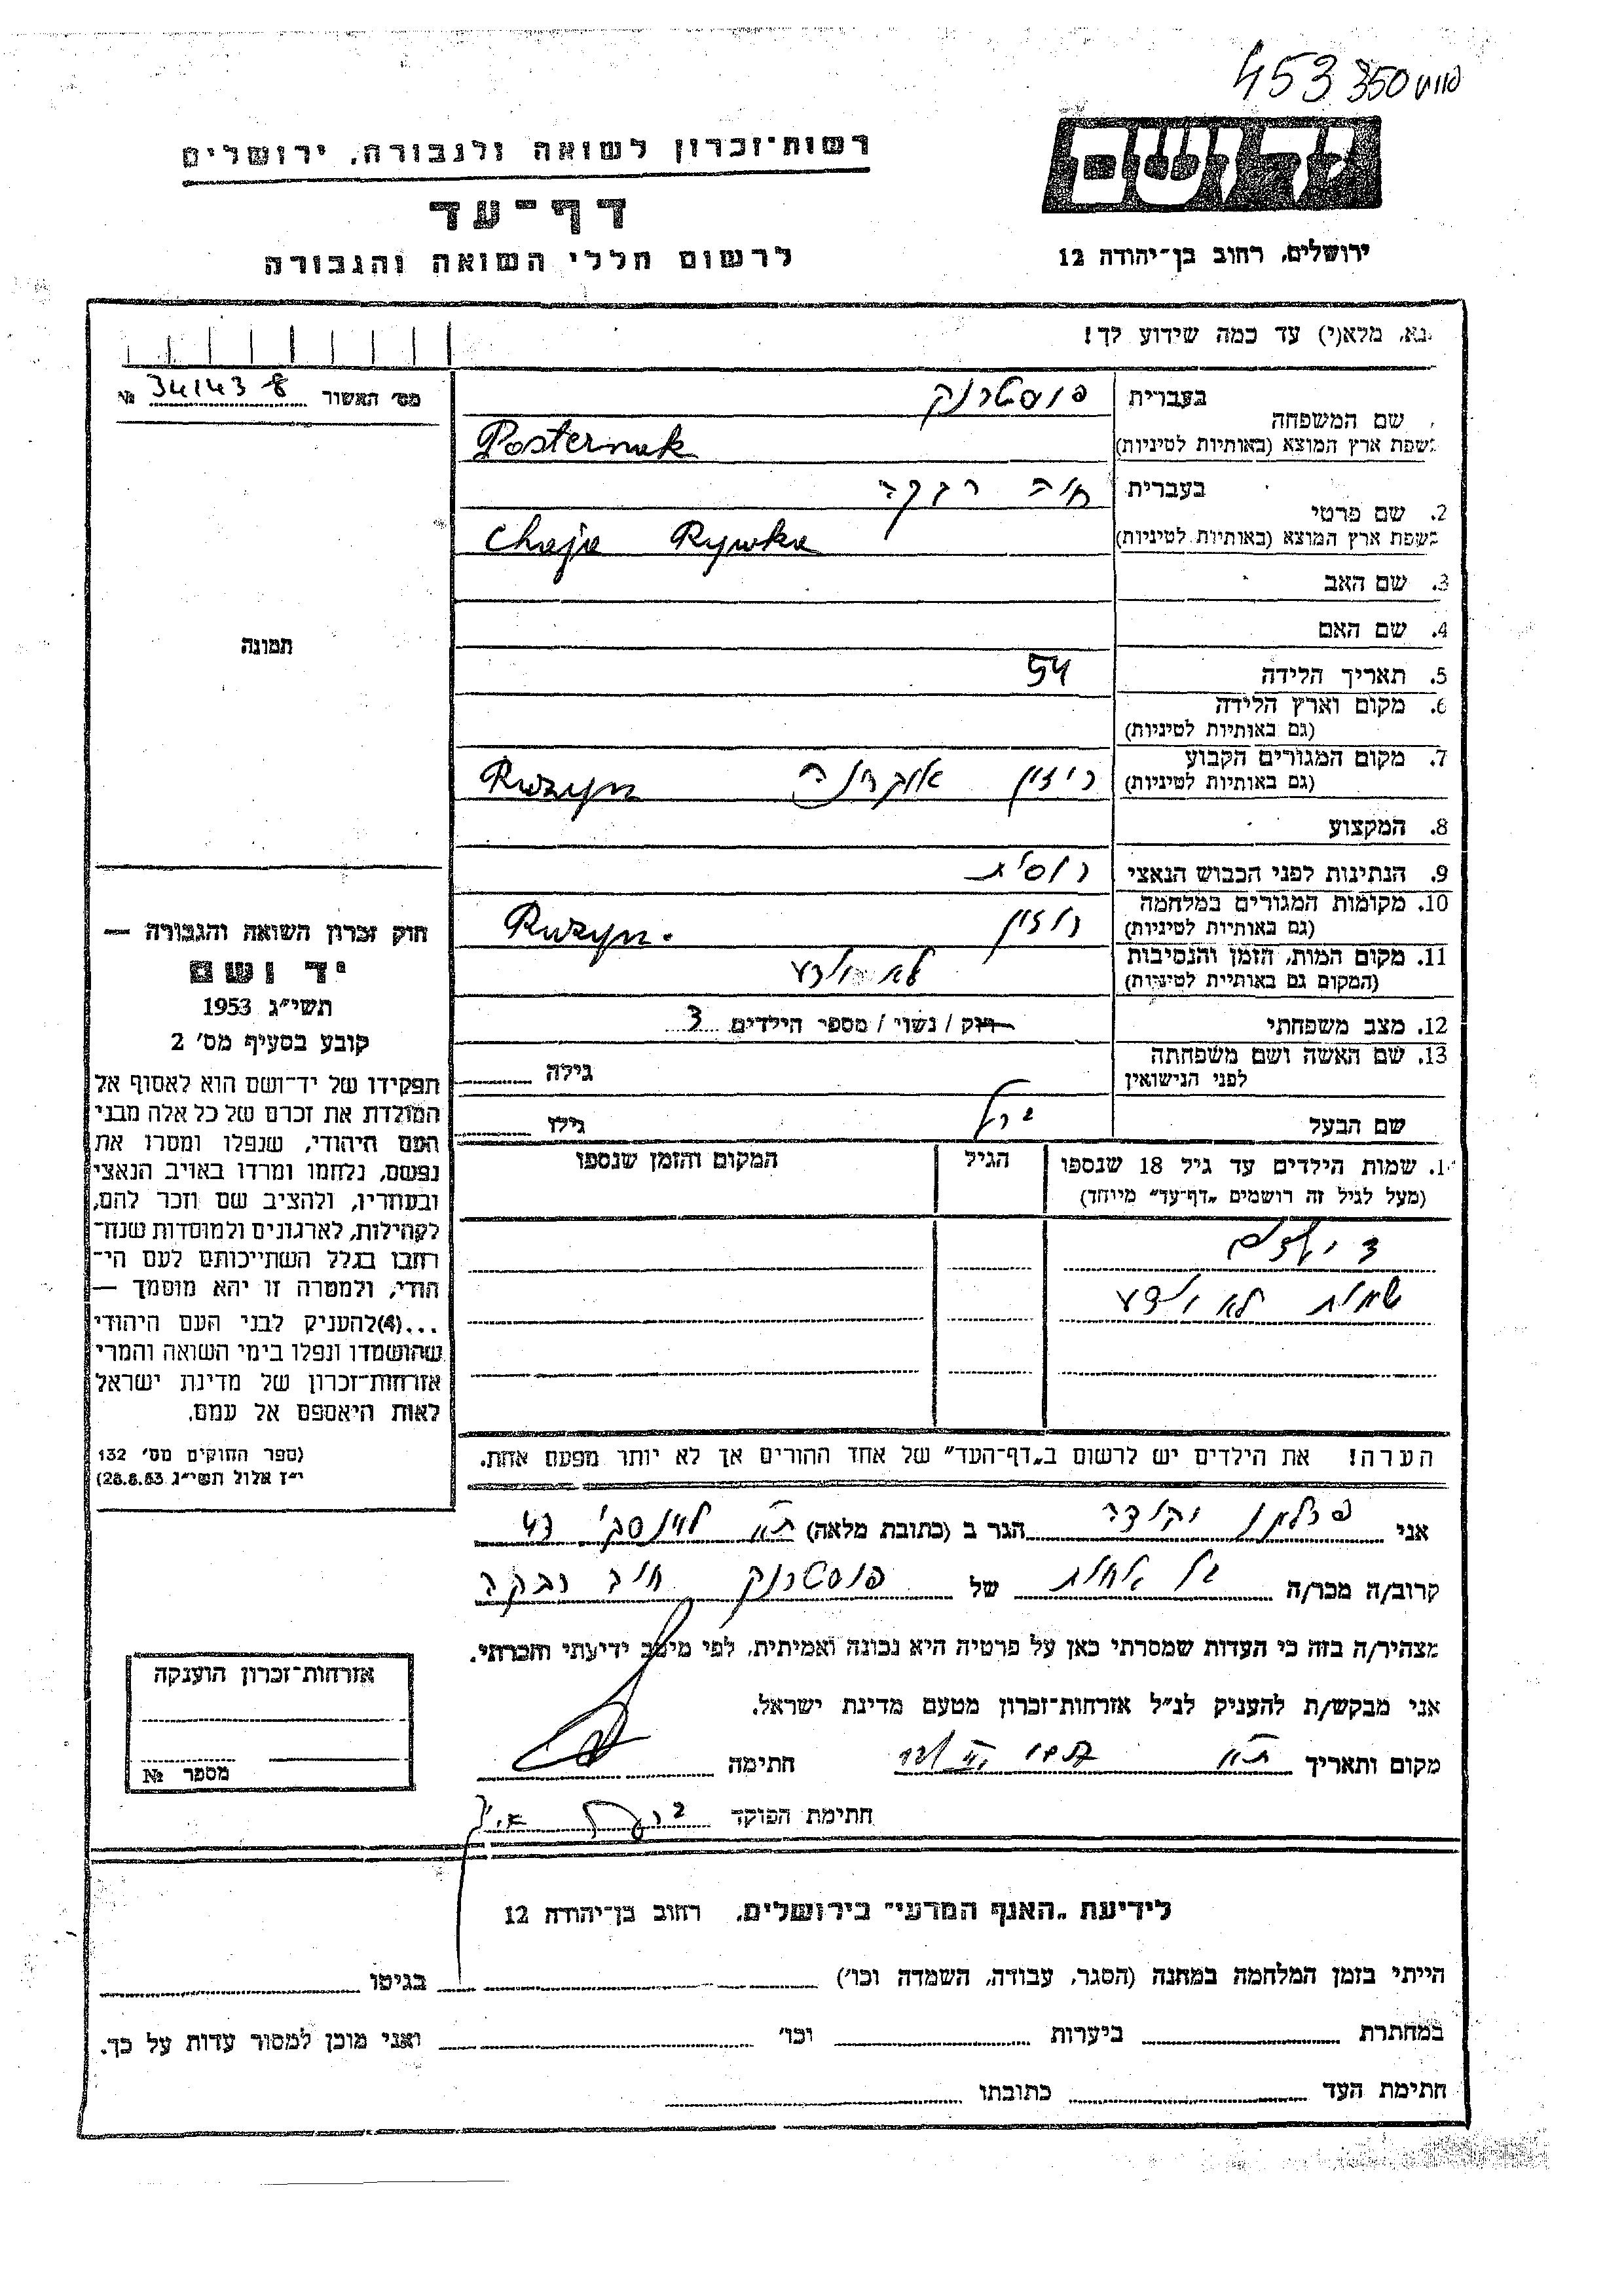 453350
רשות-זכרון לשואה ולגבורה, ירושלים
דף-עד
לרשום חללי השואה והגבורה
ירושלים, רחוב בן-יהודה 12
נא, מלא(י) עד כמה שידוע לך!
מס׳ האשור 34143 8 №
שם המשפחה
בעברית פוסטרנק
בשפת ארץ המוצא (באותיות לטיניות) Posternak
2. שם פרטי
בעברית חיה רבקה
בשפת ארץ המוצא (באותיות לטיניות) Chaja Rywka
3. שם האב
4. שם האם
תמונה
5. תאריך הלידה 54
6. מקום וארץ הלידה
(גם באותיות לטיניות)
7. מקום המגורים הקבוע
(גם באותיות לטיניות) אוקרינה Ruzyn
8. המקצוע
9. הנתינות לפני הכבוש הנאצי רוסית
10. מקומות המגורים במלחמה
(גם באותיות לטיניות) רוזין Ruzyn.
11. מקום המות, הזמן והנסיבות
(המקום גם באותיות לטיניות) לא ידוע
12. מצב משפחתי רוק / נשוי / מספר הילדים 3
13. שם האשה ושם משפחתה
לפני הנישואין גילה
שם הבעל גילו
1. שמות הילדים עד גיל 18 שנספו
(מעל לגיל זה רושמים „דף-עד” מיוחד)
הגיל
המקום והזמן שנספו
3 ילדים
שמות לא ידוע
הערה! את הילדים יש לרשום ב„דף-העד” של אחד ההורים אך לא יותר מפעם אחת.
חוק זכרון השואה והגבורה —
יד ושם
תשי״ג 1953
קובע בסעיף מס׳ 2
תפקידו של יד-ושם הוא לאסוף אל
המולדת את זכרם של כל אלה מבני
העם היהודי, שנפלו ומסרו את
נפשם, נלחמו ומרדו באויב הנאצי
ובעוזריו, ולהציב שם וזכר להם,
לקהילות, לארגונים ולמוסדות שנח-
רחבו בגלל השתייכותם לעם הי-
הודי, ולמטרה זו יהא מוסמך —
...(4)להעניק לבני העם היהודי
שהושמדו ונפלו בימי השואה והמרי
אזרחות-זכרון של מדינת ישראל
לאות היאספם אל עמם.
(ספר החוקים מס׳ 132
י״ז אלול תשי״ג 28.8.53)
אני פרלמן הגר ב (כתובת מלאה) ת״א לוינסקי 43
קרוב/ה מכר/ה של פוסטרנק חיה רבקה
מצהיר/ה בזה כי העדות שמסרתי כאן על פרטיה היא נכונה ואמיתית, לפי מיטב ידיעתי והכרתי.
אני מבקש/ת להעניק לנ״ל אזרחות-זכרון מטעם מדינת ישראל.
מקום ותאריך ת״א חתימה
חתימת הפוקד
אזרחות-זכרון הוענקה
מספר №
לידיעת „האגף המדעי” בירושלים, רחוב בן-יהודה 12
הייתי בזמן המלחמה במחנה (הסגר, עבודה, השמדה וכו׳) בגיטו
במחתרת ביערות וכו׳ ואני מוכן למסור עדות על כך.
חתימת העד כתובתו